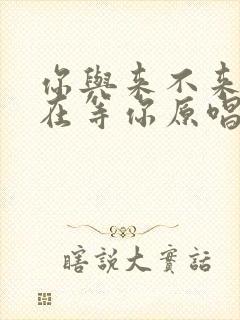 你與来不来
在等你原唱
瞎說大實話